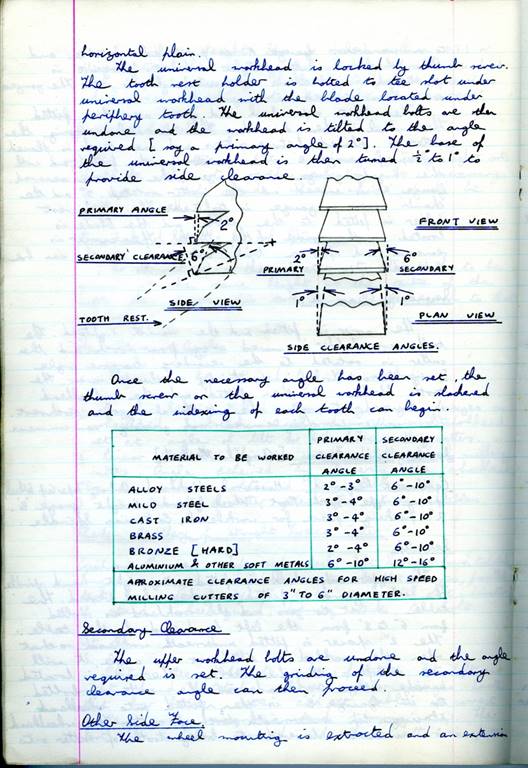 horizontal plain.
The universal workhead is locked by thumb screw.
The tooth rest holder is bolted to tee slot under
universal workhead with the blade located under
periphery tooth. The universal workhead bolts are then
undone and the workhead is tilted to the angle
required [say a primary angle of 2°]. The base of
the universal workhead is then turned ½° to 1° to
provide side clearance.
PRIMARY ANGLE
2°
SECONDARY CLEARANCE
6°
SIDE VIEW
TOOTH REST.
FRONT VIEW
2°
6°
PRIMARY
SECONDARY
1°
1°
PLAN VIEW
SIDE CLEARANCE ANGLES.
Once the necessary angle has been set, the
thumb screw on the universal workhead is slackened
and the indexing of each tooth can begin.
MATERIAL TO BE WORKED PRIMARY CLEARANCE ANGLE SECONDARY CLEARANCE ANGLE
ALLOY STEELS 2°-3° 6°-10°
MILD STEEL 3°-4° 6°-10°
CAST IRON 3°-4° 6°-10°
BRASS 3°-4° 6°-10°
BRONZE [HARD] 2°-4° 6°-10°
ALUMINIUM & OTHER SOFT METALS 6°-10° 12°-16°
APROXIMATE CLEARANCE ANGLES FOR HIGH SPEED
MILLING CUTTERS OF 3" TO 6" DIAMETER.
Secondary Clearance
The upper workhead bolts are undone and the angle
required is set. The grinding of the secondary
clearance angle can then proceed.
Other Side Face.
The wheel mounting is extracted and an extension